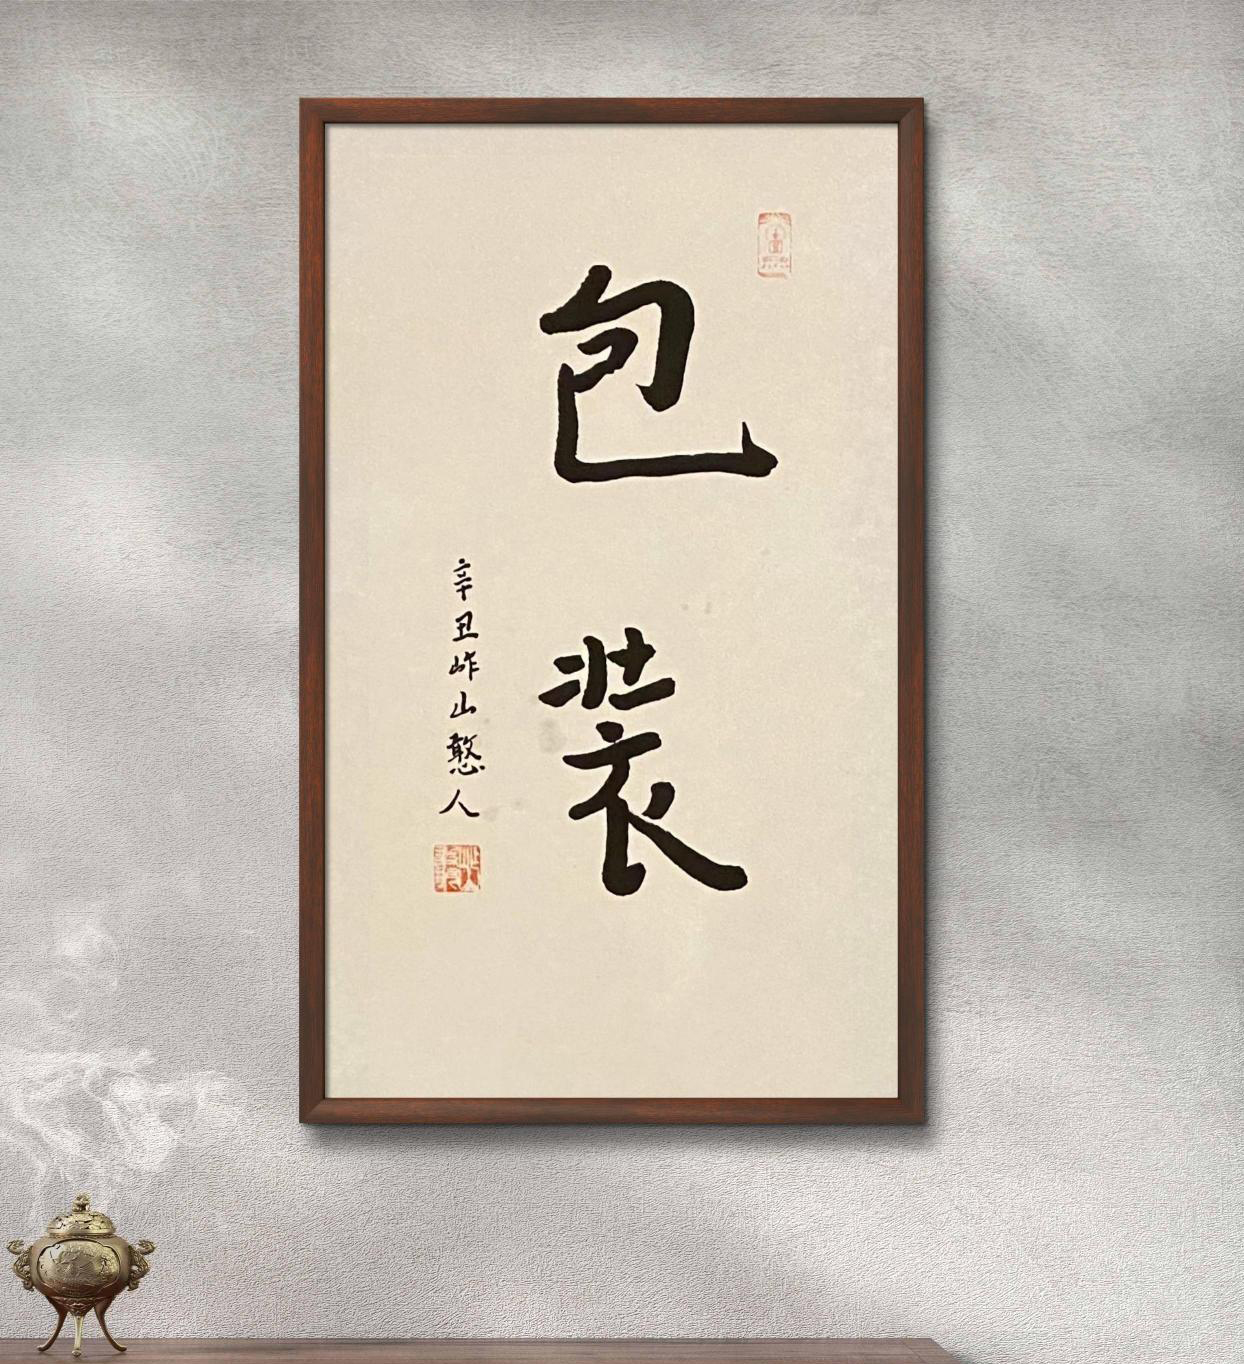 包装
辛丑岞山憨人